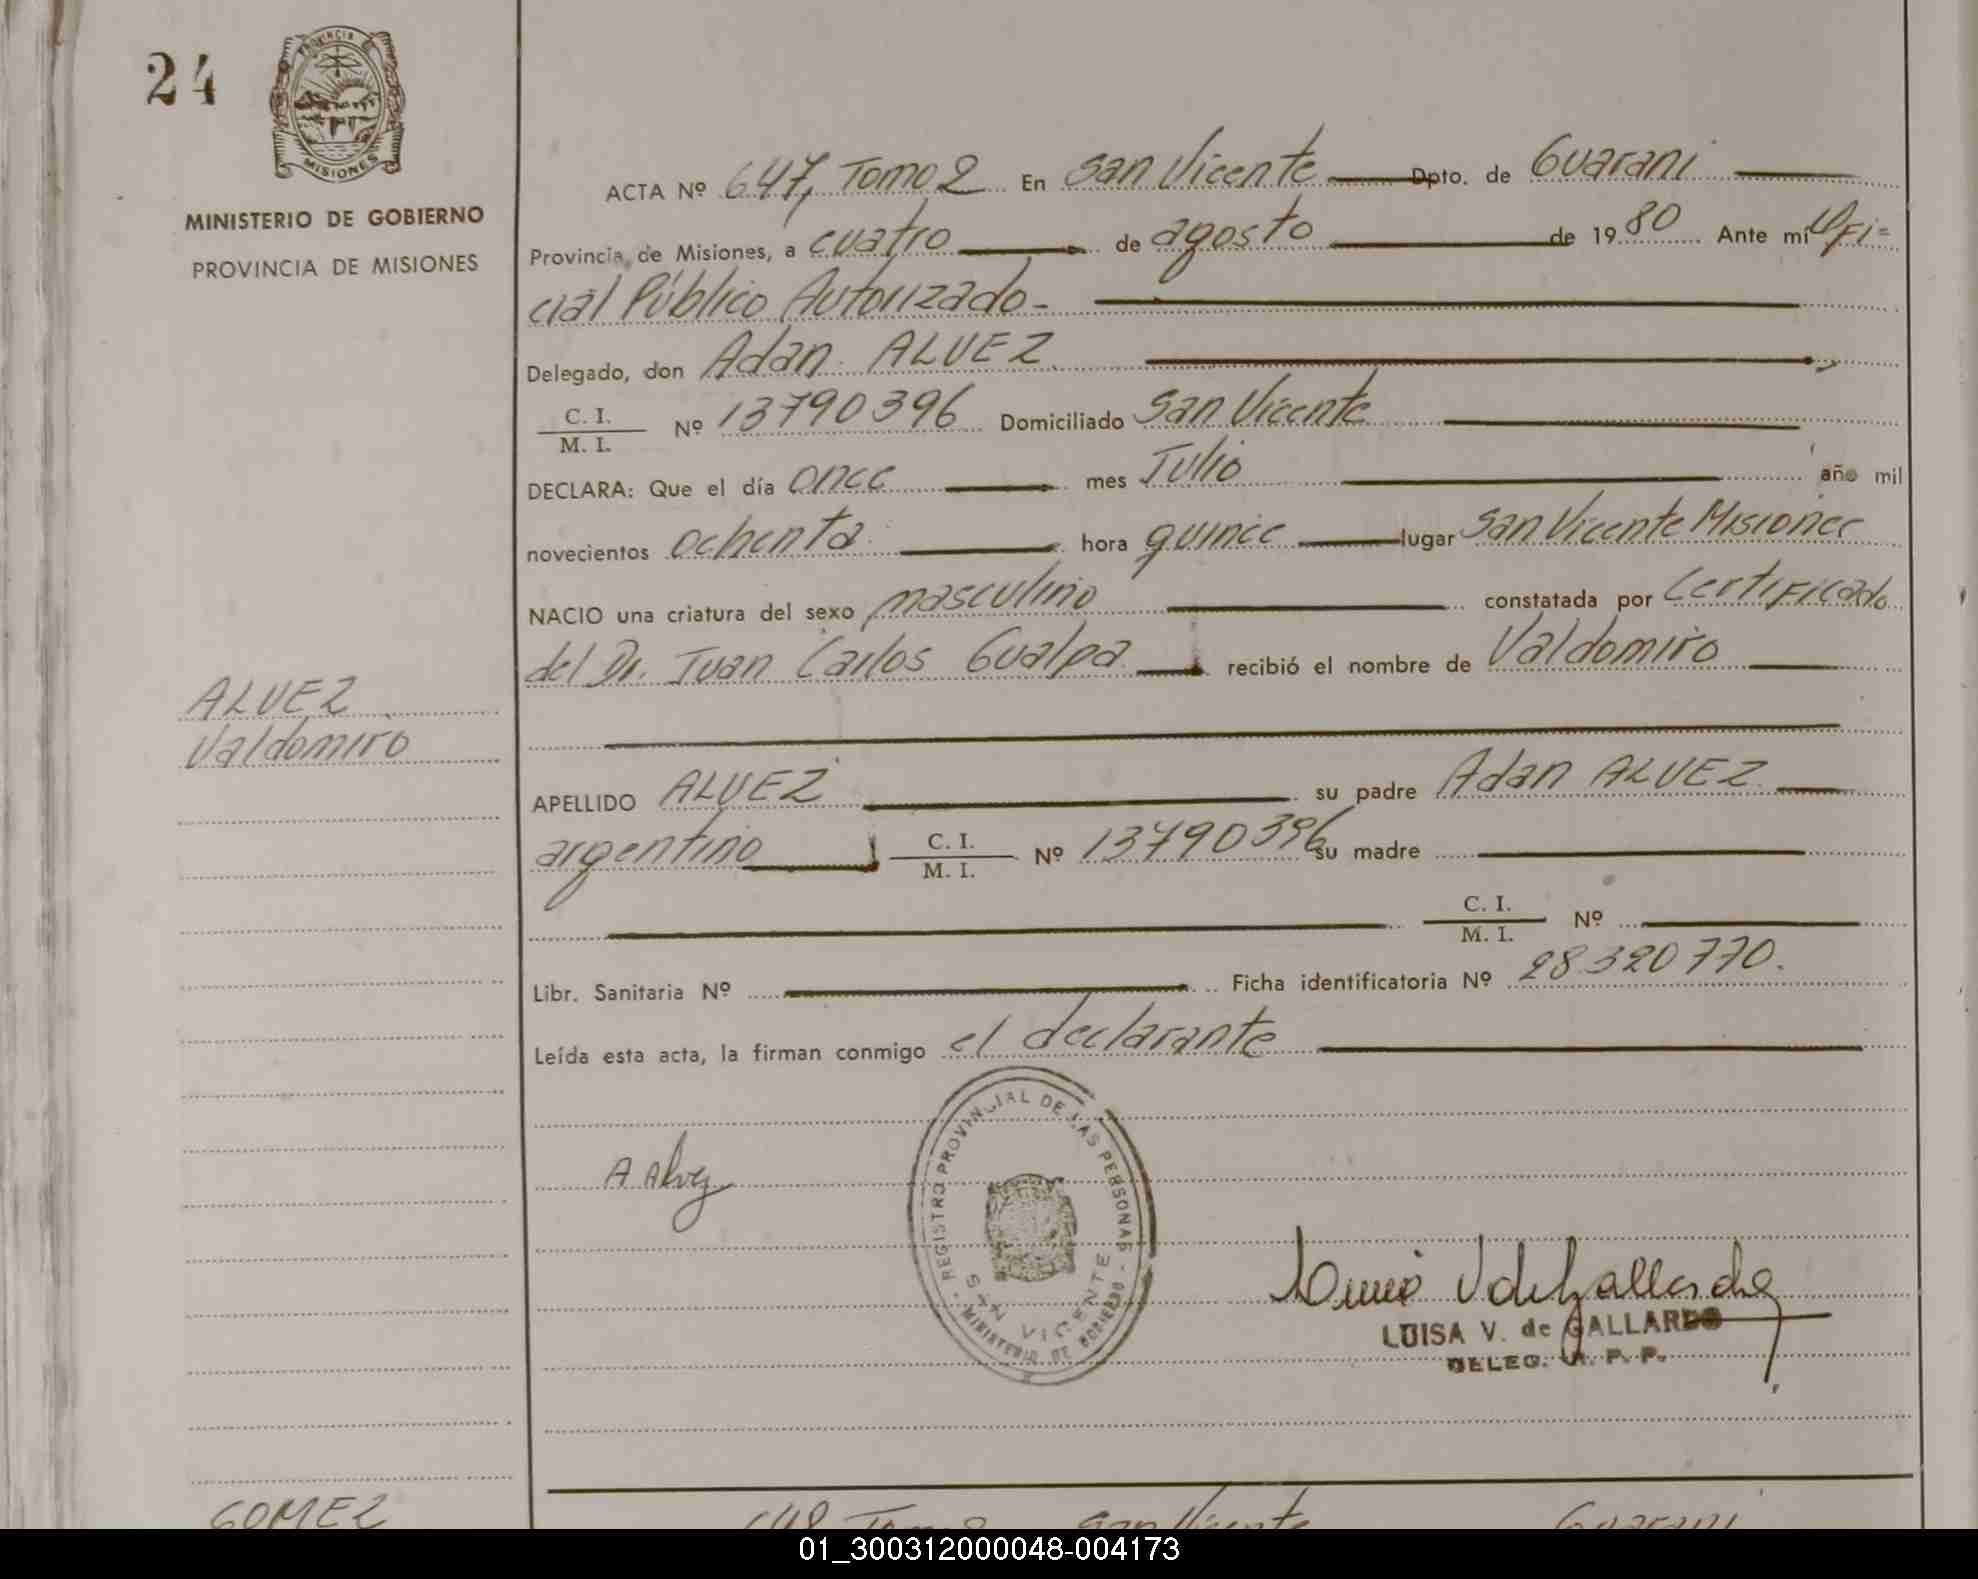 24
PROVINCIA
MISIONES
MINISTERIO DE GOBIERNO
PROVINCIA DE MISIONES
ACTA Nº 647, Tomo 2 En San Vicente Dpto. de Guarani
Provincia de Misiones, a cuatro de agosto de 1980 Ante mí Ofi=
cial Público Autorizado-
Delegado, don Adan ALVEZ
C. I.
M. I. Nº 13790396 Domiciliado San Vicente
DECLARA: Que el día once mes Julio año mil
novecientos ochenta hora quince lugar San Vicente Misiones
NACIO una criatura del sexo masculino constatada por Certificado
del Dr. Juan Carlos Gualpa recibió el nombre de Valdomiro
ALVEZ
Valdomiro
APELLIDO ALVEZ su padre Adan ALVEZ
argentino C. I. M. I. Nº 13790396 su madre
C. I. M. I. Nº
Libr. Sanitaria Nº Ficha identificatoria Nº 28320770.
Leída esta acta, la firman conmigo el declarante
A Alvez
REGISTRO PROVINCIAL DE LAS PERSONAS - MINISTERIO DE GOBIERNO -
SAN VICENTE
Luisa V de Gallardo
LUISA V. de GALLARDO
DELEG. R. P. P.
GOMEZ
648 Tomo 2 San Vicente Guarani
01_300312000048-004173